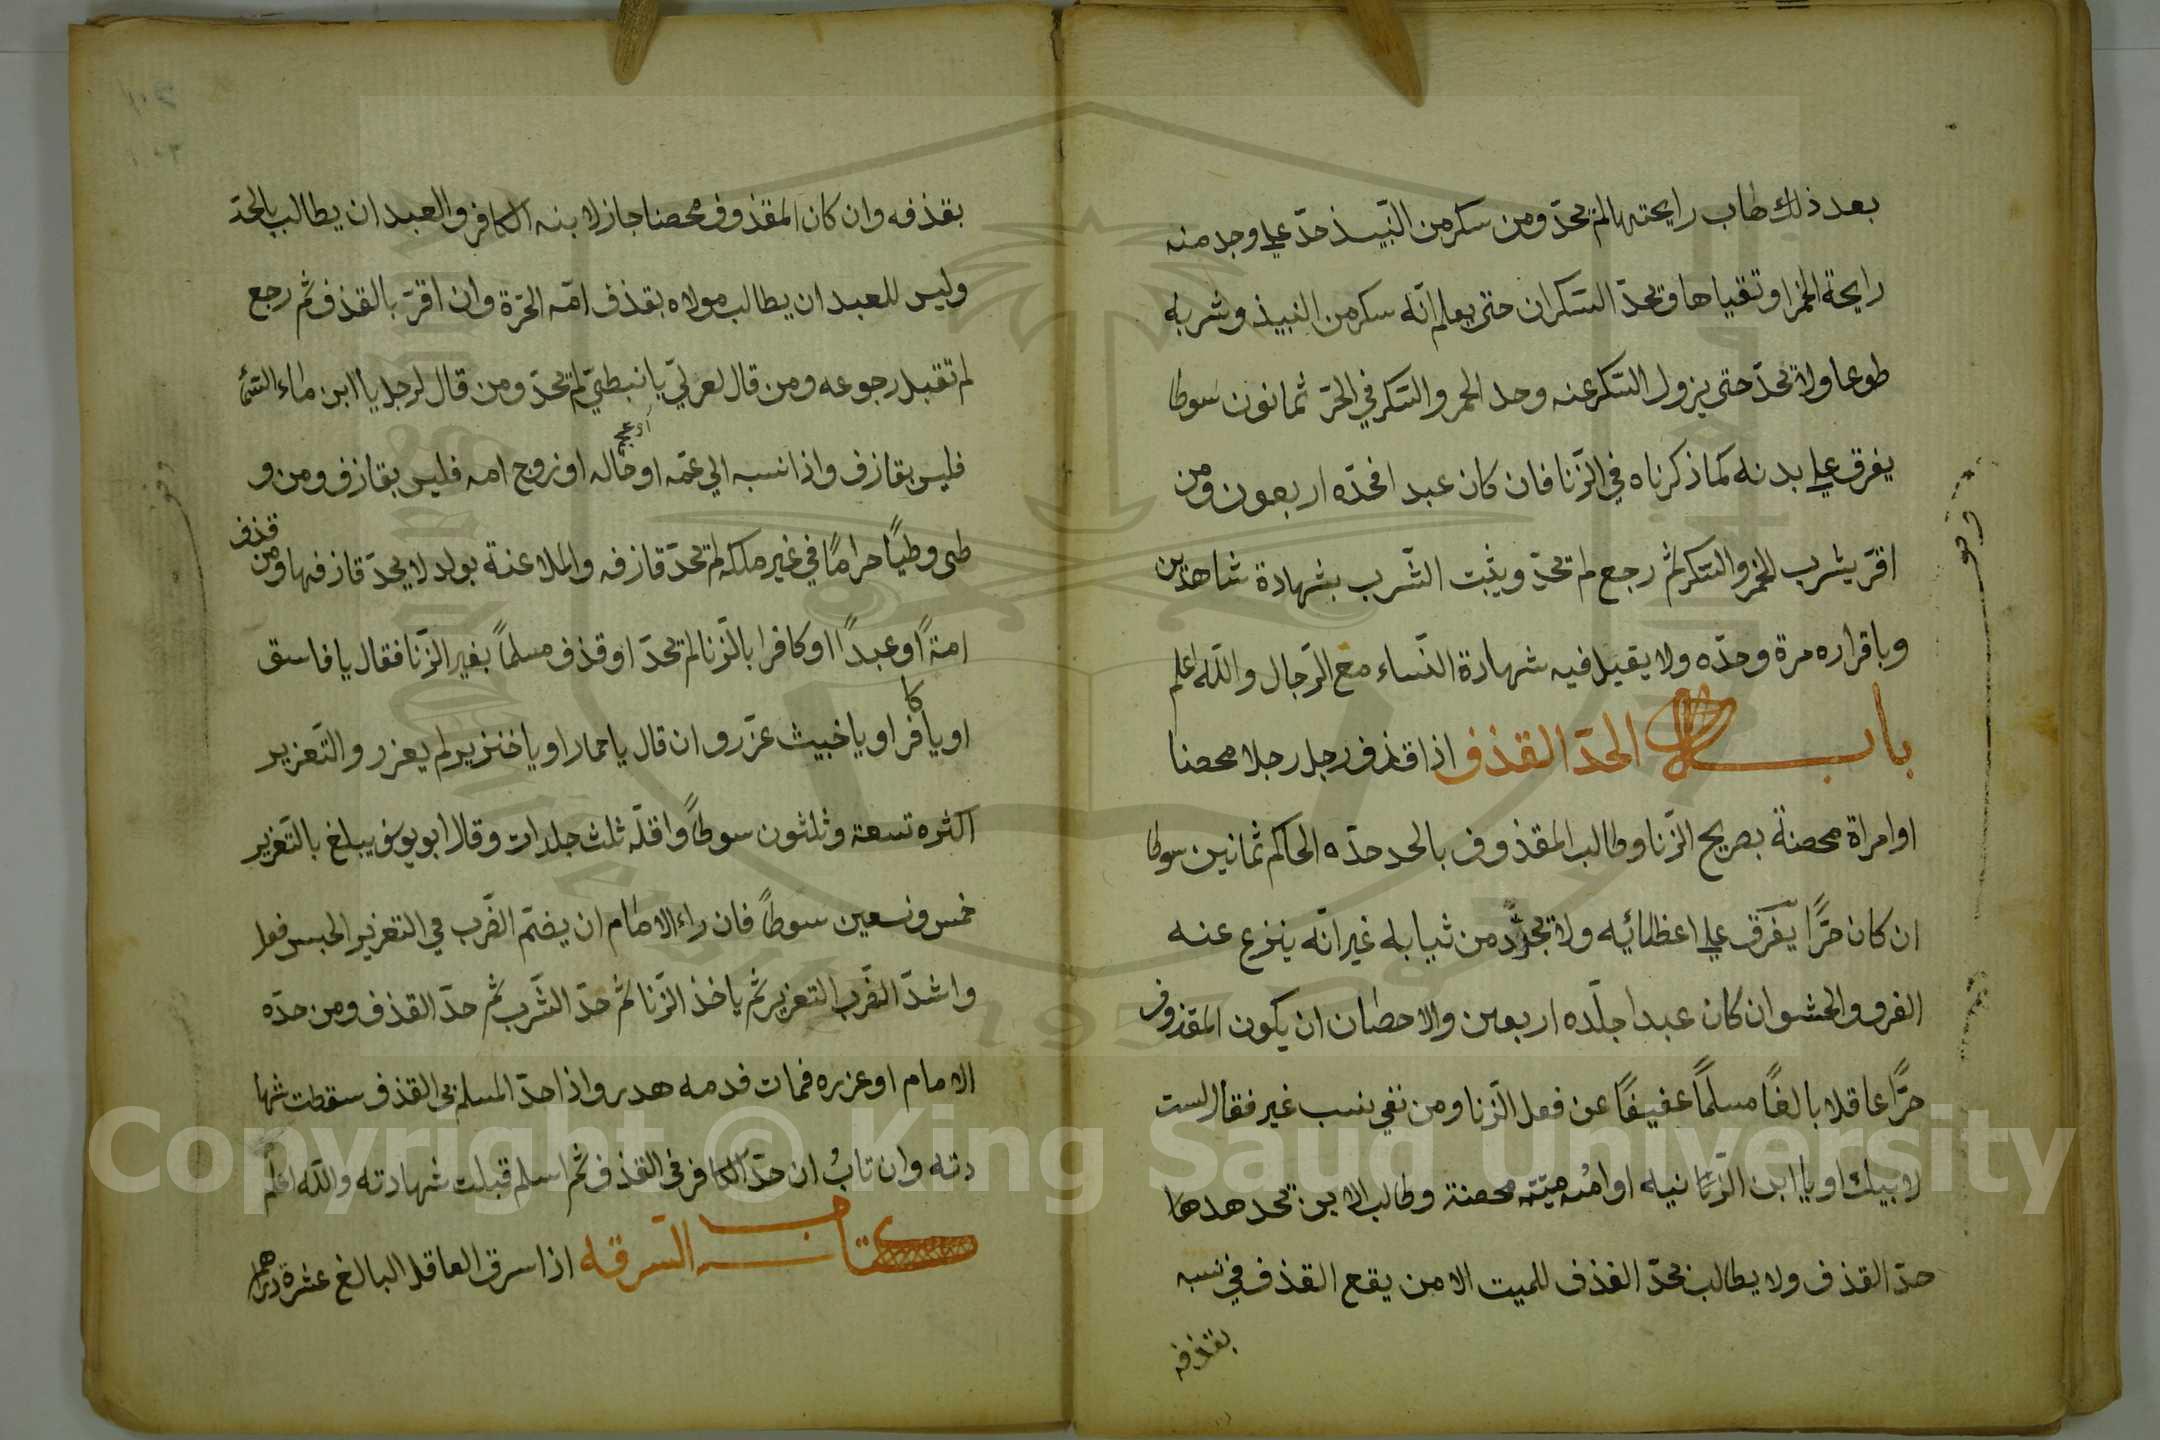 بعد ذلك طاب رايحتها لم تحدّ ومن سكر من النّبيذ حدّ علي وجد منه
رايحة الخمر او تقياها وتحدّ السّكران حتى يعلم انّه سكر من النبيذ وشربه
طوعا ولا تحدّ حتى يزول السّكر عنه وحد الخمر والسّكر في الحرّ ثمانون سوطا
يفرق علي بدنه كما ذكرناه في الزّنا فان كان عبدا فحدّه اربعون ومن
اقرّ يشرب الخمر والسّكر ثم رجع لم تحدّ ويثبت الشّرب بشهادة شاهدين
وباقراره مرة وحدّه ولا يقبل فيه شهادة النّساء مع الرّجال والله اعلم
باب الحدّ القذف اذا قذف رجل رجلا محصنا
او امراة محصنة بصريح الزّنا وطالب المقذوف بالحد حدّه الحاكم ثمانين سوطا
ان كان حرًّا يفرّق علي اعظائيه ولا تجرّد من ثيابه غير انّه ينزع عنه
الفرو والحشو ان كان عبدا جلّده اربعين والاحصان ان يكون المقذوف
حرًّا عاقلا بالغًا مسلمًا عفيفًا عن فعل الزّنا ومن نفي بنسب غير فقال لست
لابيك او يا ابن الزّانيه او امّه ميّته محصنة وطالب الابن تحد
حدّ القذف ولا يطالب بحدّ القذف للميت الا من يقع القذف في نسبه
بقذفه
بقذفه وان كان المقذوف محصنا جاز لابنه الكافر والعبد ان يطالب بالحدّ
وليس للعبد ان يطالب مولاه بقذف امّه الحرّة وان اقرّ بالقذف ثم رجع
لم تقبل رجوعه ومن قال لعربيّ يا نبطيّ لم تحدّ ومن قال لرجل يا ابن ماء السّماء
فليس بقازف واذا نسبه الي عمّه او خاله او زوج امه فليس بقازف ومن و
طى وطيًا حرامًا في غير ملكه لم تحدّ قازفه والملاعنة بولد لا يحدّ قازفها ومن قذف
امةً او عبدًا او كافرا بالزّنا لم تحدّ او قذف مسلمًا بغير الزّنا فقال يا فاسق
او يا كافر او يا خبيث عزّر وان قال يا حمار او يا خنزير لم يعزر والتّعزير
اكثره تسعة وثلثون سوطًا واقلّه ثلث جلدات وقال ابو يوسف يبلغ بالتّعزير
خمس وتسعين سوطًا فان راء الامام ان يضمّ الضّرب في التعزير الحبس فعل
واشدّ الضّرب التعزير ثم ياخذ الزّنا ثم حدّ الشّرب ثم حدّ القذف ومن حدّه
الامام او عزره فمات فدمه هدر واذا حدّ المسلم في القذف سقطت شها
دته وان تاب ان حدّ الكافر في القذف ثم اسلم قبلت شهادته والله اعلم
كتاب السّرقه اذا سرق العاقل البالغ عشرة دراهم
Copyright © King Saud University